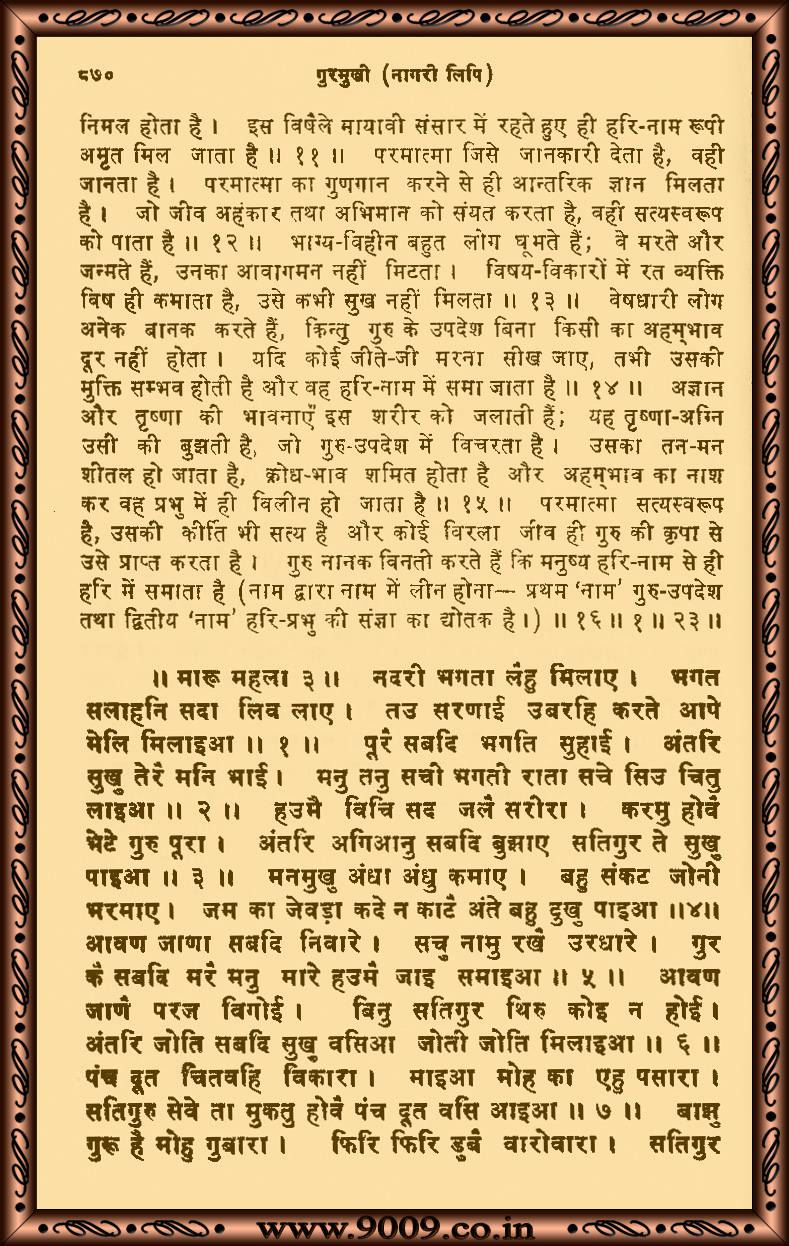 ८७० गुरमुखी (नागरी लिपि)
निमल होता है। इस विषैले मायावी संसार में रहते हुए ही हरि-नाम रूपी
अमृत मिल जाता है॥ ११॥ परमात्मा जिसे जानकारी देता है, वही
जानता है। परमात्मा का गुणगान करने से ही आन्तरिक ज्ञान मिलता
है। जो जीव अहंकार तथा अभिमान को संयत करता है, वही सत्यस्वरूप
को पाता है॥ १२॥ भाग्य-विहीन बहुत लोग घूमते हैं; वे मरते और
जन्मते हैं, उनका आवागमन नहीं मिटता। विषय-विकारों में रत व्यक्ति
विष ही कमाता है, उसे कभी सुख नहीं मिलता॥ १३॥ वेषधारी लोग
अनेक बानक करते हैं, किन्तु गुरु के उपदेश बिना किसी का अहम्‌भाव
दूर नहीं होता। यदि कोई जीते-जी मरना सीख जाए, तभी उसकी
मुक्ति सम्भव होती है और वह हरि-नाम में समा जाता है॥ १४॥ अज्ञान
और तृष्णा की भावनाएँ इस शरीर को जलाती हैं; यह तृष्णा-अग्नि
उसी की बुझती है, जो गुरु-उपदेश में विचरता है। उसका तन-मन
शीतल हो जाता है, क्रोध-भाव शमित होता है और अहम्‌भाव का नाश
कर वह प्रभु में ही विलीन हो जाता है॥ १५॥ परमात्मा सत्यस्वरूप
है, उसकी कीर्ति भी सत्य है और कोई विरला जीव ही गुरु की कृपा से
उसे प्राप्त करता है। गुरु नानक विनती करते हैं कि मनुष्य हरि-नाम से ही
हरि में समाता है (नाम द्वारा नाम में लीन होना— प्रथम ‘नाम’ गुरु-उपदेश
तथा द्वितीय ‘नाम’ हरि-प्रभु की संज्ञा का द्योतक है।)॥ १६॥ १॥ २३॥
॥ मारू महला ३॥ नदरी भगता लैहु मिलाए। भगत
सलाहनि सदा लिव लाए। तउ सरणाई उबरहि करते आपे
मेलि मिलाइआ॥ १॥ पूरै सबदि भगति सुहाई। अंतरि
सुखु तेरै मनि भाई। मनु तनु सची भगती राता सचे सिउ चितु
लाइआ॥ २॥ हउमै विचि सद जलै सरीरा। करमु होवै
भेटे गुरु पूरा। अंतरि अगिआनु सबदि बुझाए सतिगुर ते सुखु
पाइआ॥ ३॥ मनमुखु अंधा अंधु कमाए। बहु संकट जोनी
भरमाए। जम का जेवड़ा कदे न काटै अंते बहु दुखु पाइआ॥४॥
आवण जाणा सबदि निवारे। सचु नामु रखै उरधारे। गुर
कै सबदि मरै मनु मारे हउमै जाइ समाइआ॥ ५॥ आवण
जाणै परज विगोई। बिनु सतिगुर थिरु कोइ न होई।
अंतरि जोति सबदि सुखु वसिआ जोती जोति मिलाइआ॥ ६॥
पंच दूत चितवहि विकारा। माइआ मोह का एहु पसारा।
सतिगुरु सेवे ता मुकतु होवै पंच दूत वसि आइआ॥ ७॥ बाझु
गुरू है मोहु गुबारा। फिरि फिरि डुबै वारोवारा। सतिगुर
www.9009.co.in